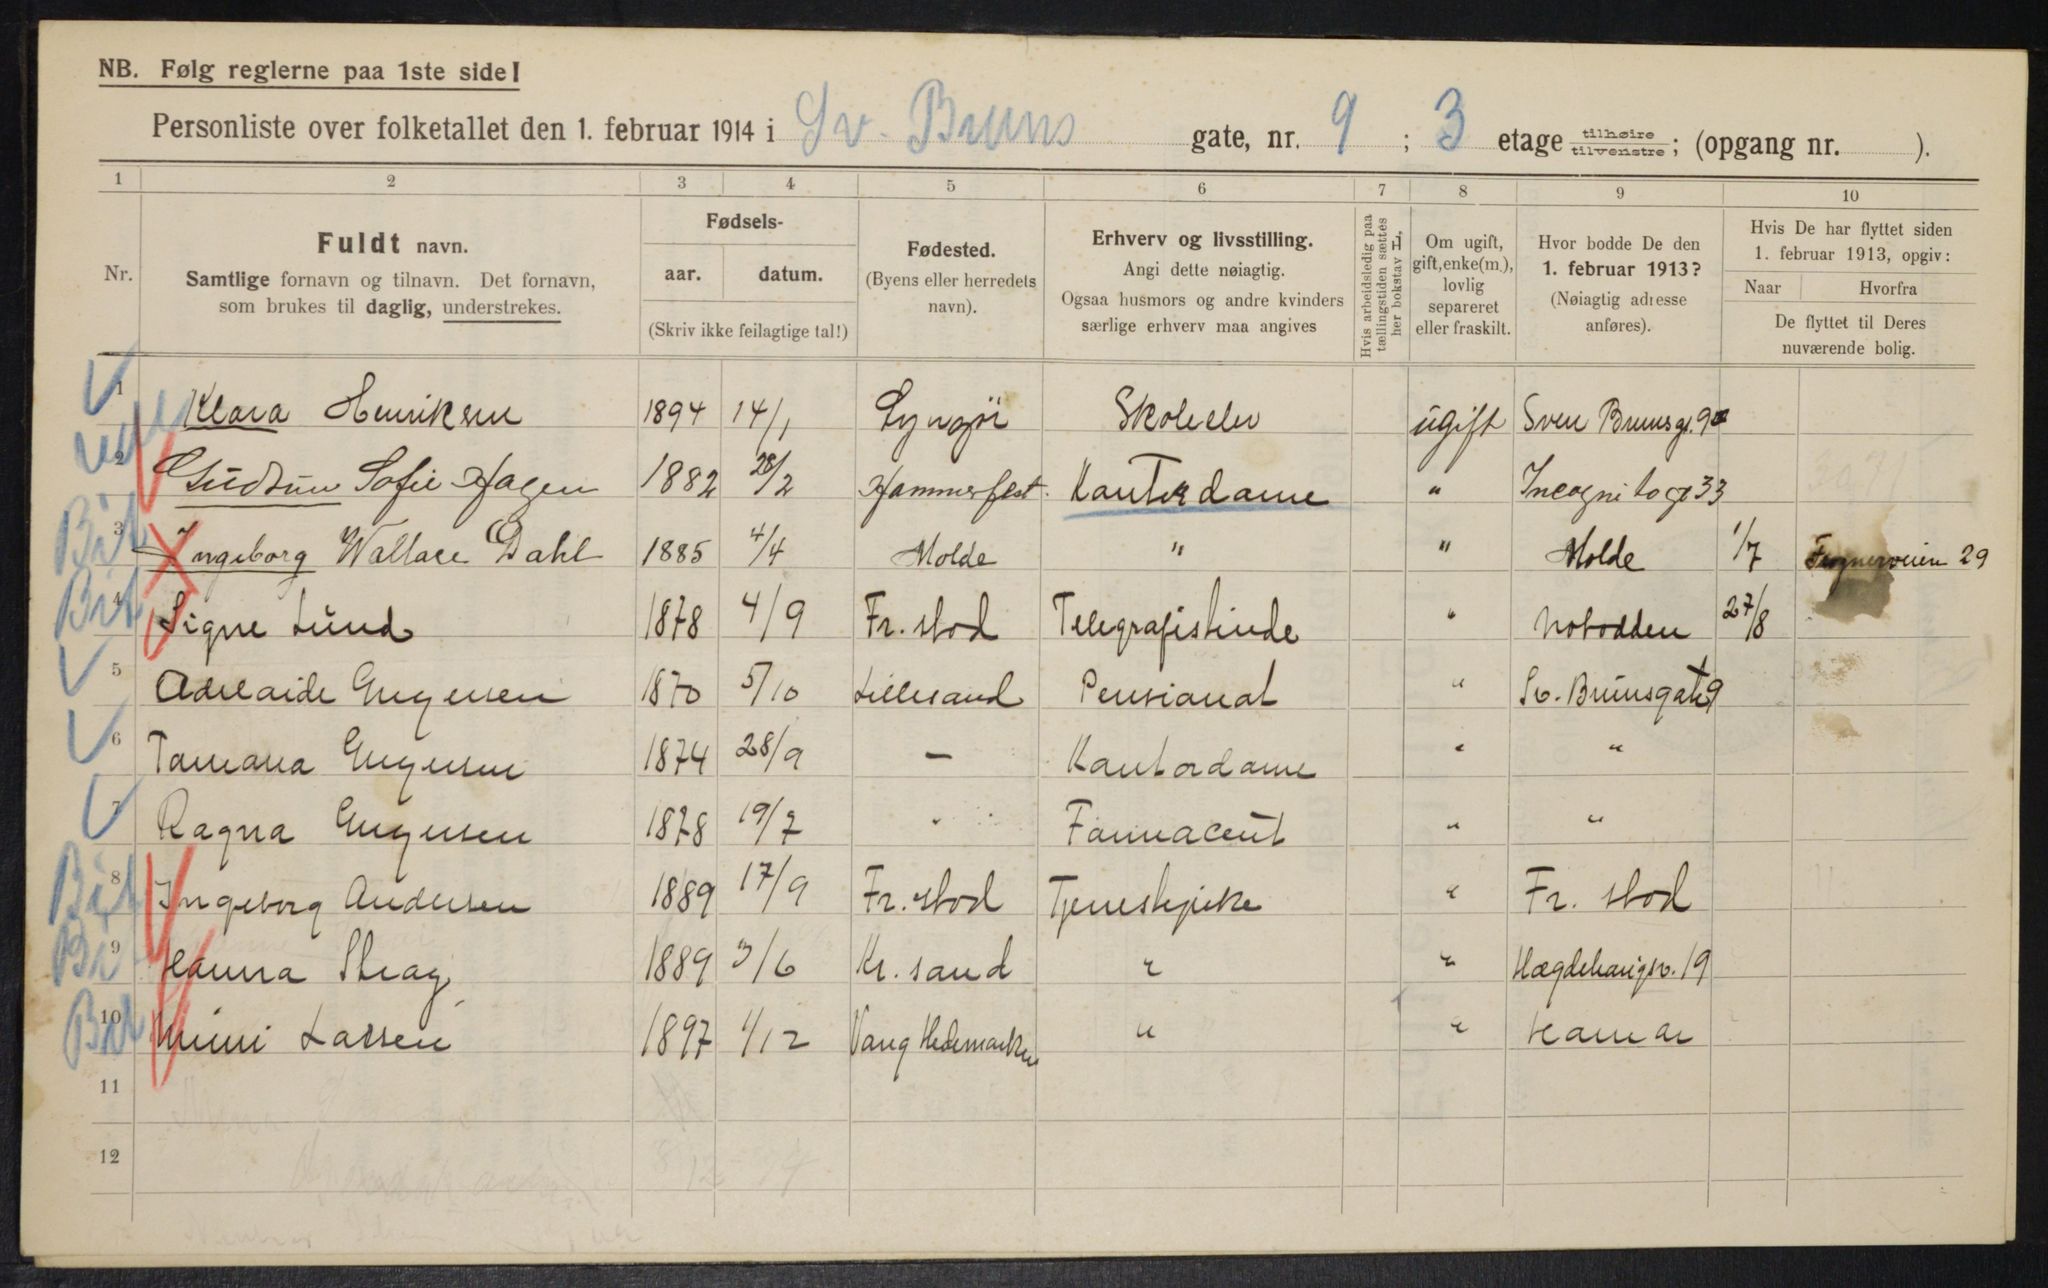 NB. Følg reglerne paa 1ste side!
Personliste over folketallet den 1. februar 1914 i Sv. Bruns gate, nr. 9 ; 3 etage tilhøire tilvenstre; (opgang nr. ).
1 2 3 4 5 6 7 8 9 10
Nr.
Fuldt navn.
Samtlige fornavn og tilnavn. Det fornavn,
som brukes til daglig, understrekes.
Fødsels-
aar. datum.
(Skriv ikke feilagtige tal!)
Fødested.
(Byens eller herredets
navn).
Erhverv og livsstilling.
Angi dette nøiagtig.
Ogsaa husmors og andre kvinders
særlige erhverv maa angives
Hvis arbeidsledig paa
tællingstiden sættes
her bokstav L,
Om ugift,
gift, enke(m.),
lovlig
separeret
eller fraskilt.
Hvor bodde De den
1. februar 1913?
(Nøiagtig adresse
anføres).
Hvis De har flyttet siden
1. februar 1913, opgiv:
Naar Hvorfra
De flyttet til Deres
nuværende bolig.
1 Klara Henriksen 1894 14/1 Lyngør Skoleelev ugift Sven Brunsg. 9
2 Gudrun Sofie Hagen 1882 28/2 Hammerfest. Kontordame " Incognitogt 33
3 Ingeborg Wallace Dahl 1885 4/4 Molde " " Molde 1/7 Frognerveien 29
4 Signe Lund 1878 4/9 Fr. stad Telegrafistinde " Notodden 27/8
5 Adelaide 1870 5/10 Lillesand Pensionat " Sv. Brunsgate 9
6 1874 28/9 — Kontordame " "
7 Ragna 1878 19/7 " Farmaceut " "
8 Ingeborg Andersen 1889 17/9 Fr. stad Tjenestepike " Fr. stad
9 Hanna 1889 3/6 Kr. sand " " Hægdehaugsv. 19
10 Mimi Larsen 1897 1/12 Vang Hedemarken " " Hamar
11
12